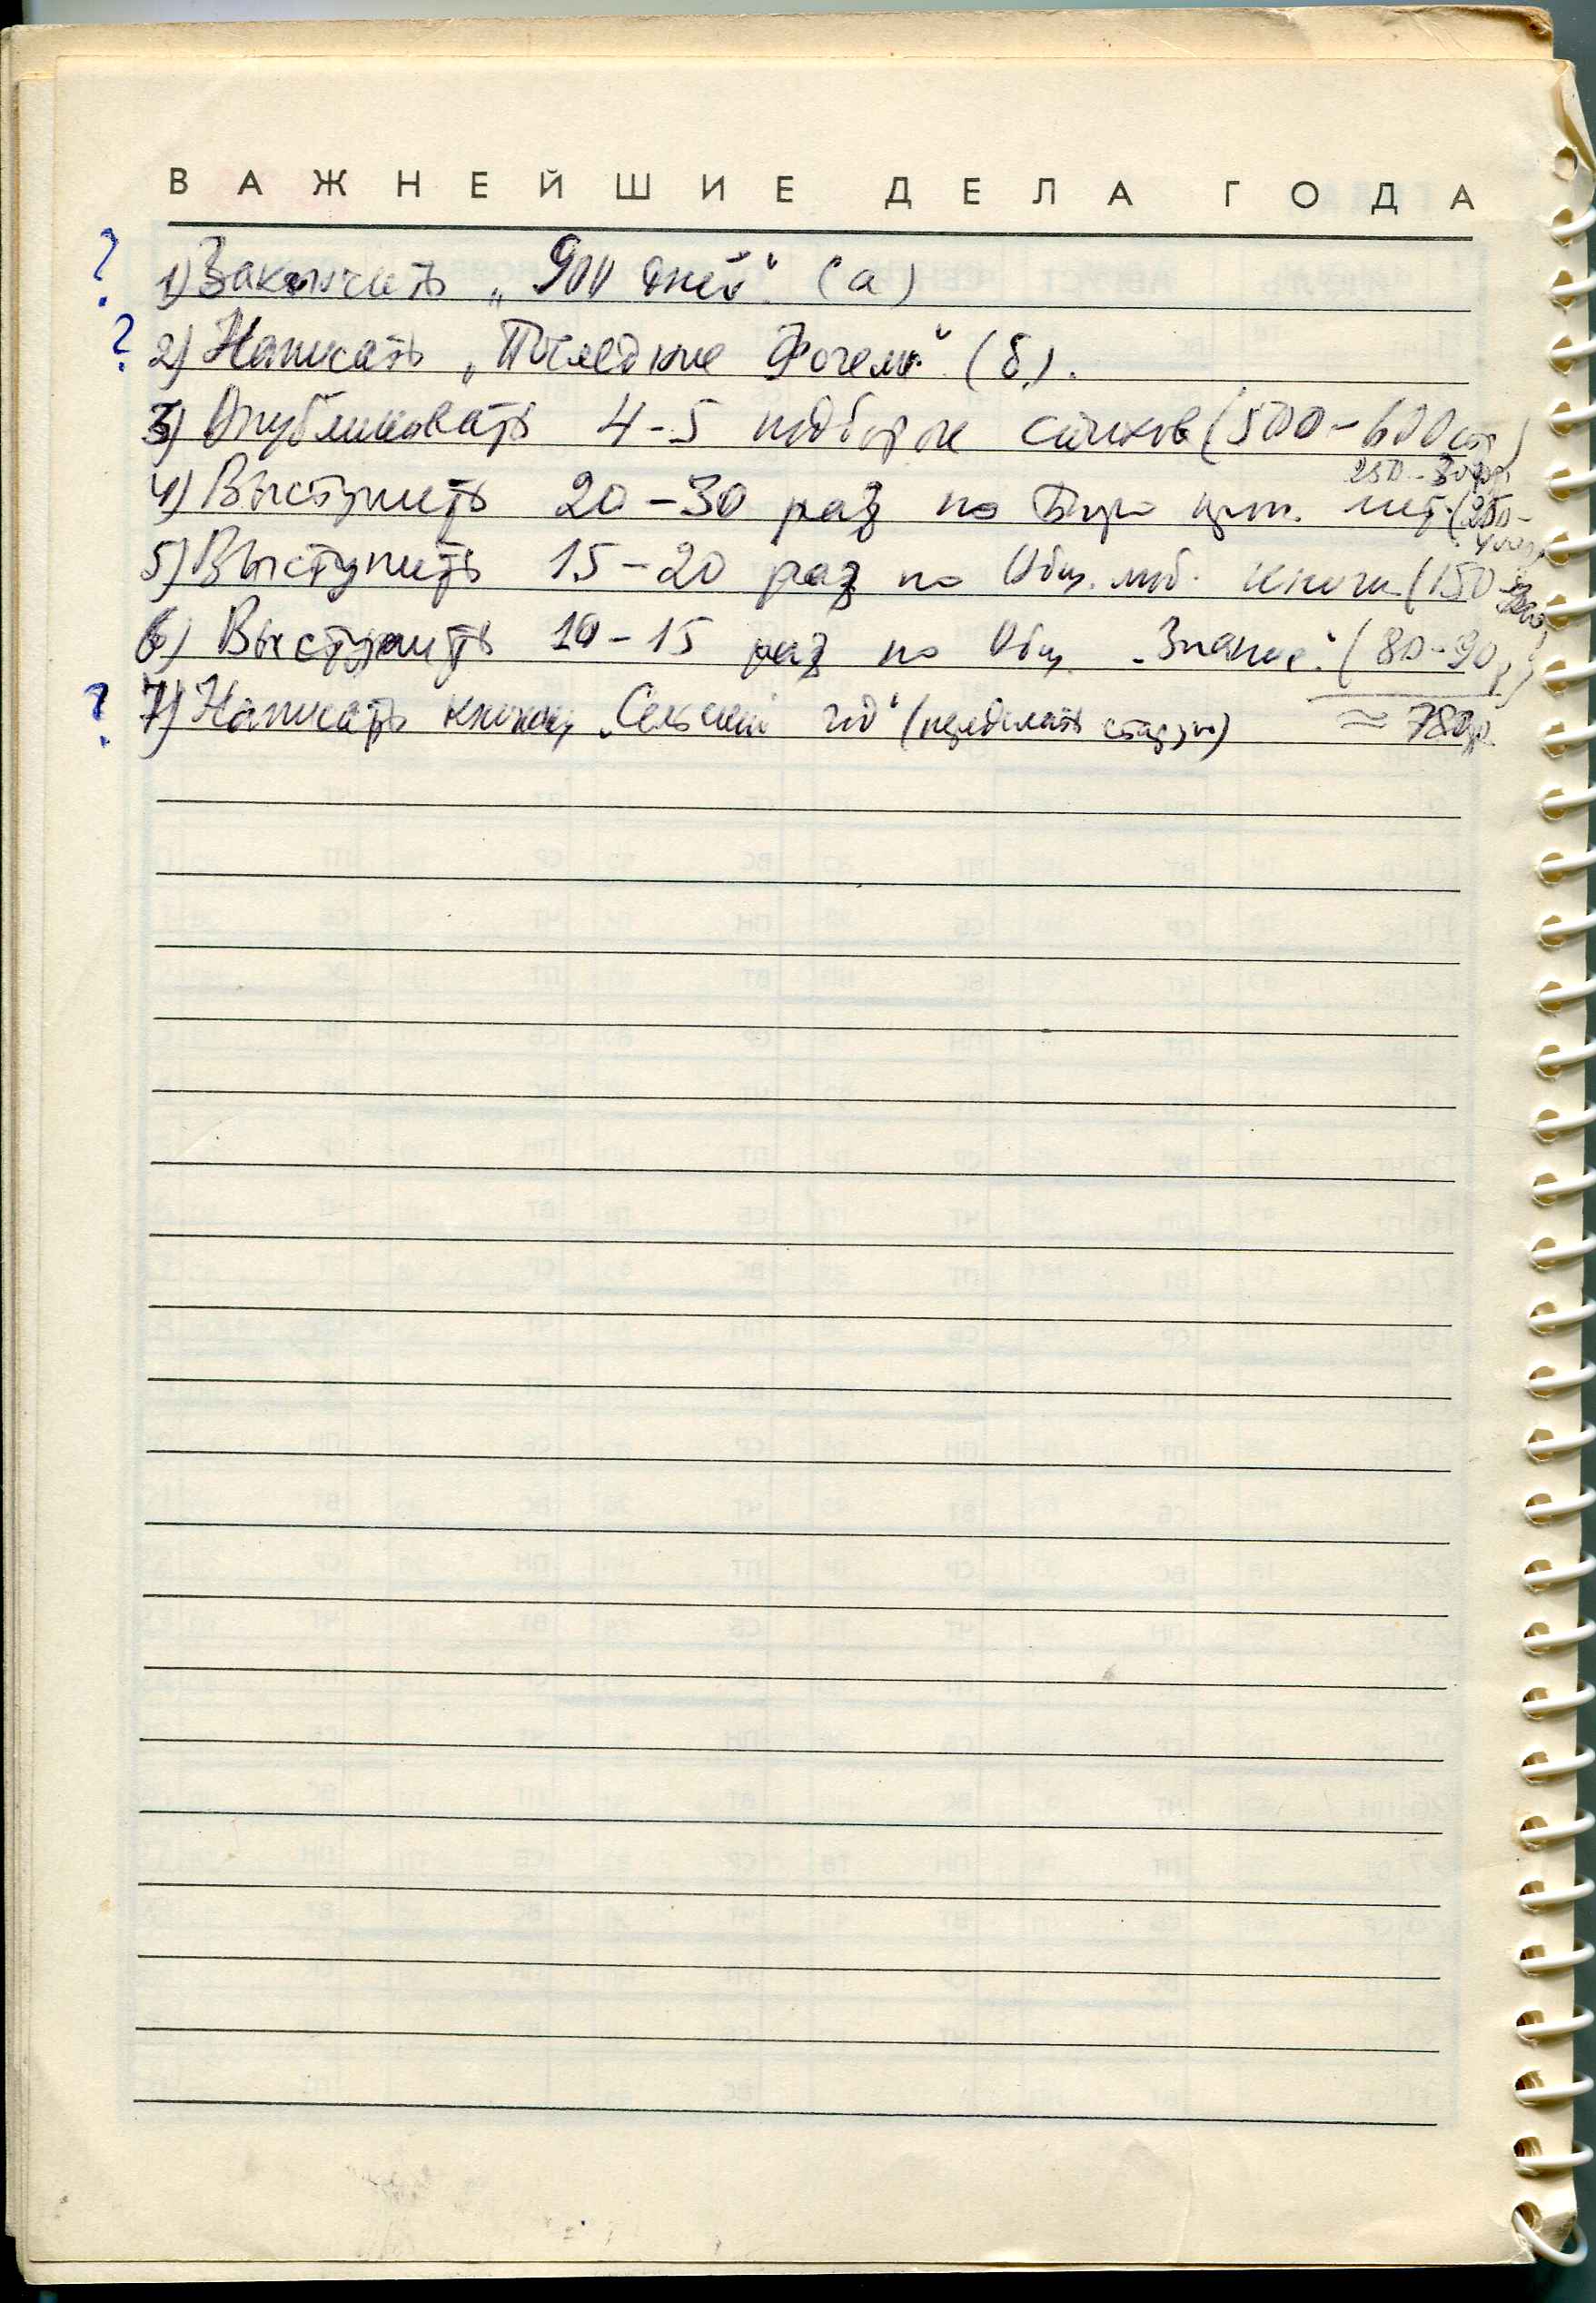 ВАЖНЕЙШИЕ ДЕЛА ГОДА
? 1) Закончить „900 дней“ (а)
? 2) Написать „Последние (б).
3) Опубликовать 4-5 подборок стихов (500-600
250-300
4) Выступить 20-30 раз по Бюро проп. лит. (250-
400
5) Выступить 15-20 раз по Общ. люб. книги (150
6) Выступить 10-15 раз по Общ. „Знание“ (80-90р)
? 7) Написать книжку „Сельский год“ (переделать старую) ≈ 780р